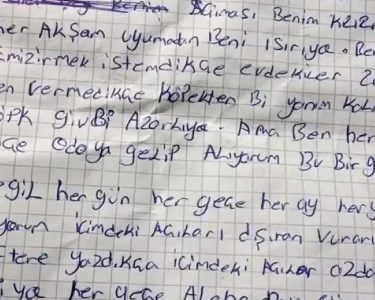 Benim Kızı
her AKŞam uyumadın Beni ısırıya. Be
mizirmek istemdikae evdekiler
en vermedikae Köpekten Bi yanım Kal
öpk givBi Azorlıya. AMA Ben her
Odoya gelip Alıyorum Bu Bir g
eğil her gün her geae her ay her y
yorum içimdeki Acıları dşıran vura
tere yazdıkaa içimdeki Acılar azda
ya her geae